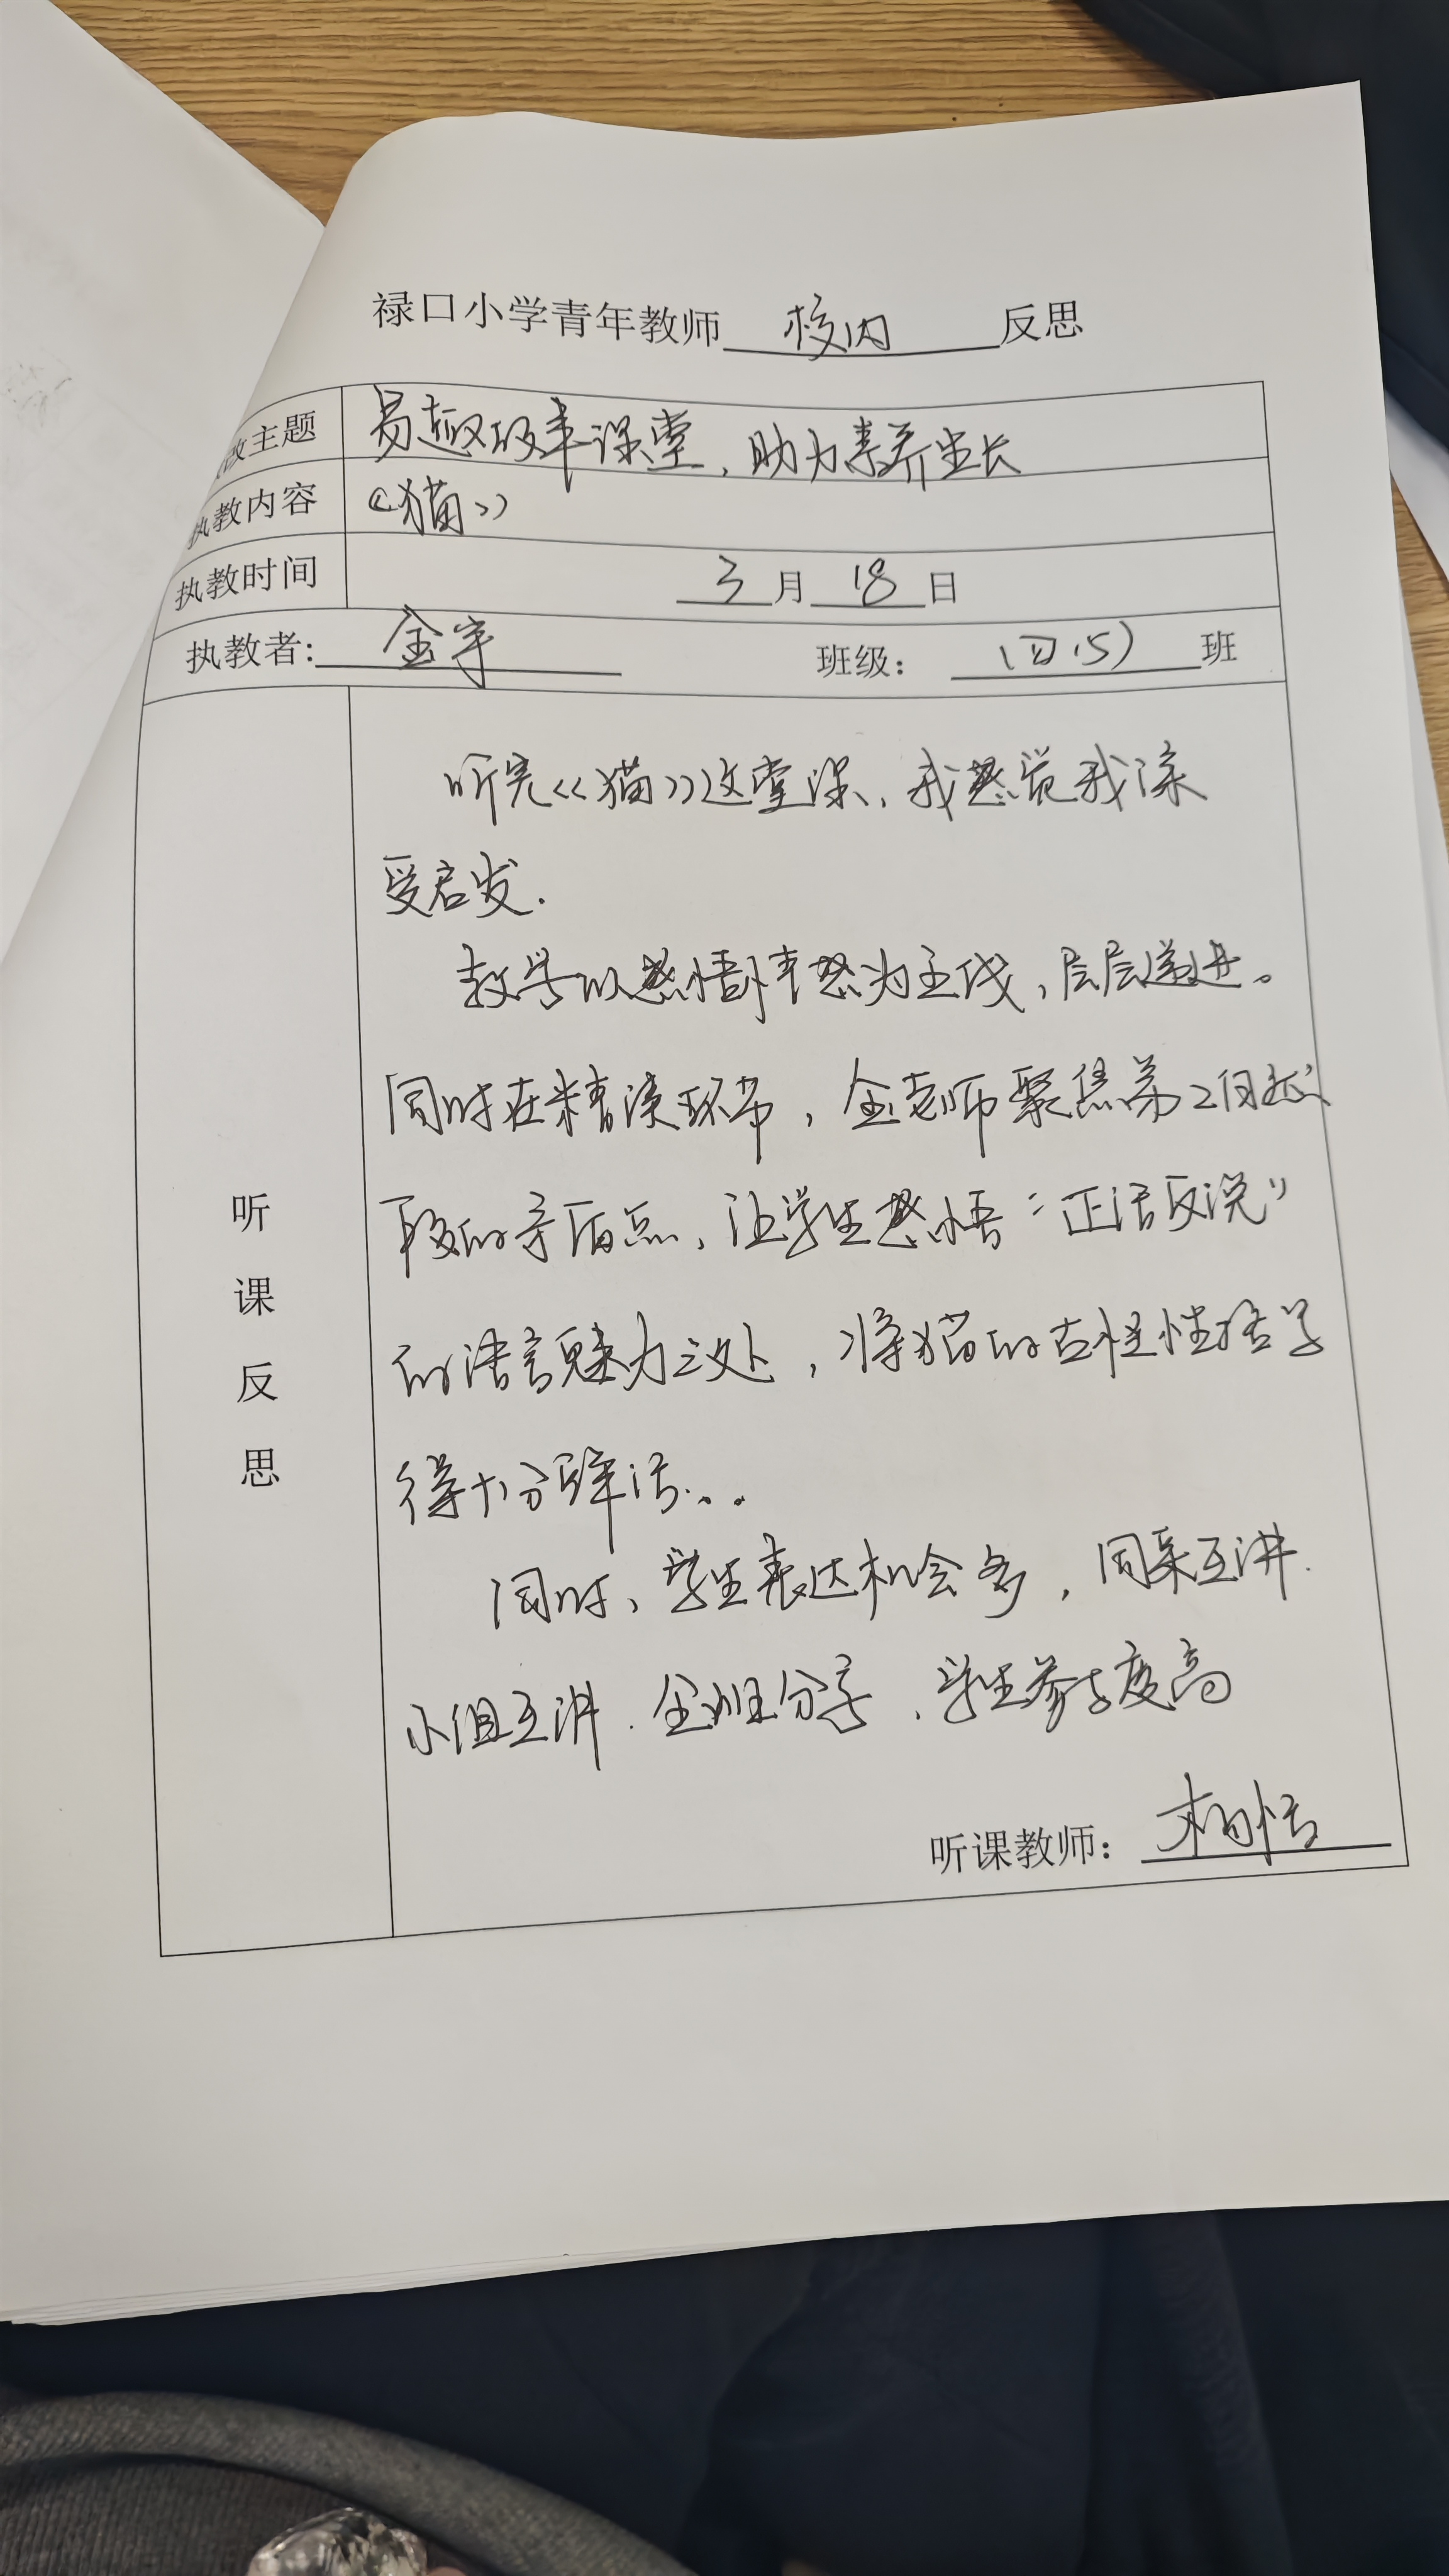 禄口小学青年教师 校内 反思
改主题 易趣改革课堂，助力素养生长
执教内容 《猫》
执教时间 3月18日
执教者: 金宇 班级: (四.5) 班
听课反思
听完《猫》这堂课，我感觉我深
受启发.
教学以感悟情感为主线，层层递进。
同时在精读环节，金老师聚焦第2自然
段的矛盾点，让学生感悟“正话反说”
的语言魅力之处，将猫的古怪性格学
得十分鲜活...
同时、学生表达机会多，同桌互讲.
小组互讲.全班分享.学生参与度高
听课教师: